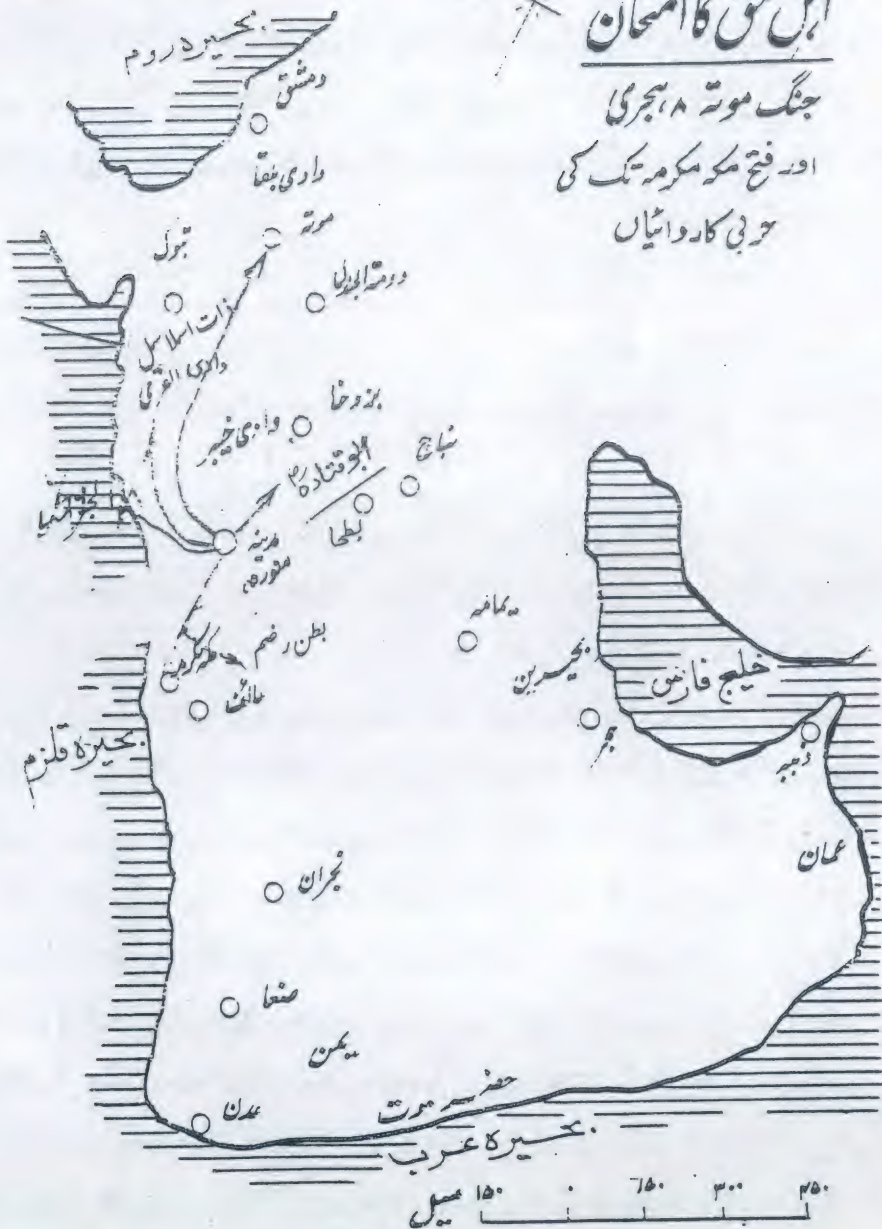 اہل حق کا امتحان
جنگ موتہ ۸ ہجری
اور فتح مکہ مکرمہ تک کی
حربی کاروائیاں
بحیرہ روم
دمشق
وادی بلقا
موتہ
تبوک
دومتہ الجندل
ذات اسلاسل
وادی القریٰ
بزوخا
وادی خیبر
ابوقتادہؓ
نباج
بطحا
مدینہ
منورہ
یمامہ
بطن رضم
مکہ مکرمہ
طائف
بحیرہ قلزم
بحیرین
ہجر
خلیج فارس
عمان
نجران
صنعا
یمن
عدن
حضر موت
بحیرہ عرب
میل ۱۵۰ ۰ ۱۵۰ ۳۰۰ ۴۵۰